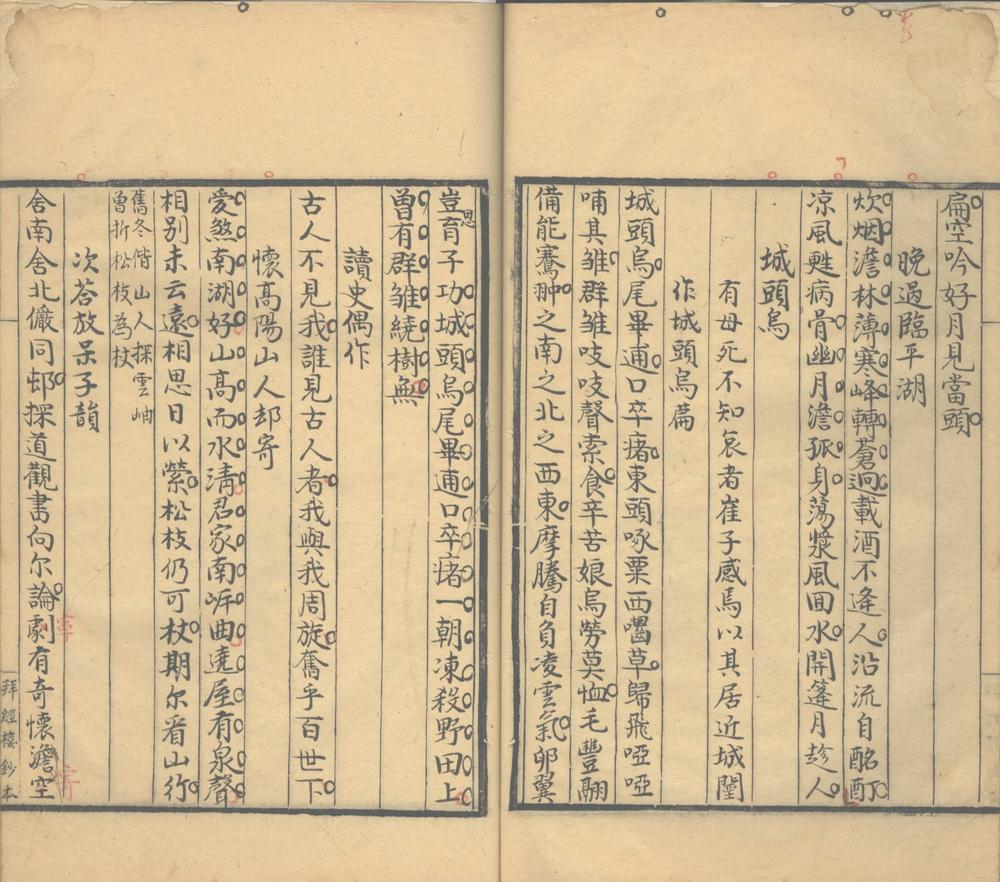 扁空吟好月見當頭
晚過臨平湖
炊烟澹林薄寒峰轉蒼迥載酒不逢人沿流自酩酊
凉風甦病骨幽月澹孤身蕩槳風回水開篷月趂人
城頭烏
有母死不知哀者崔子感焉以其居近城闉
作城頭烏篇
城頭烏尾畢逋口卒瘏東頭啄粟西噶草歸飛啞啞
哺其雛群雛吱吱聲索食辛苦娘烏勞莫恤毛豐翮
備能騫翀之南之北之西東摩騰自負凌雲氣卵翼
豈思育子功城頭烏尾畢逋口卒瘏一朝凍殺野田上
曾有群雛繞樹無
讀史偶作
古人不見我誰見古人者我與我周旋奮乎百世下
懷高陽山人却寄
愛煞南湖好山高而水清君家南岍曲遶屋有泉聲
相別未云遠相思日以縈松枝仍可杖期尔看山行
舊冬偕山人探雲岫
曾折松枝為杖
次荅放呆子韻
舍南舍北儼同邨探道觀書向尔論劇有奇懷澹空
拜經樓鈔本